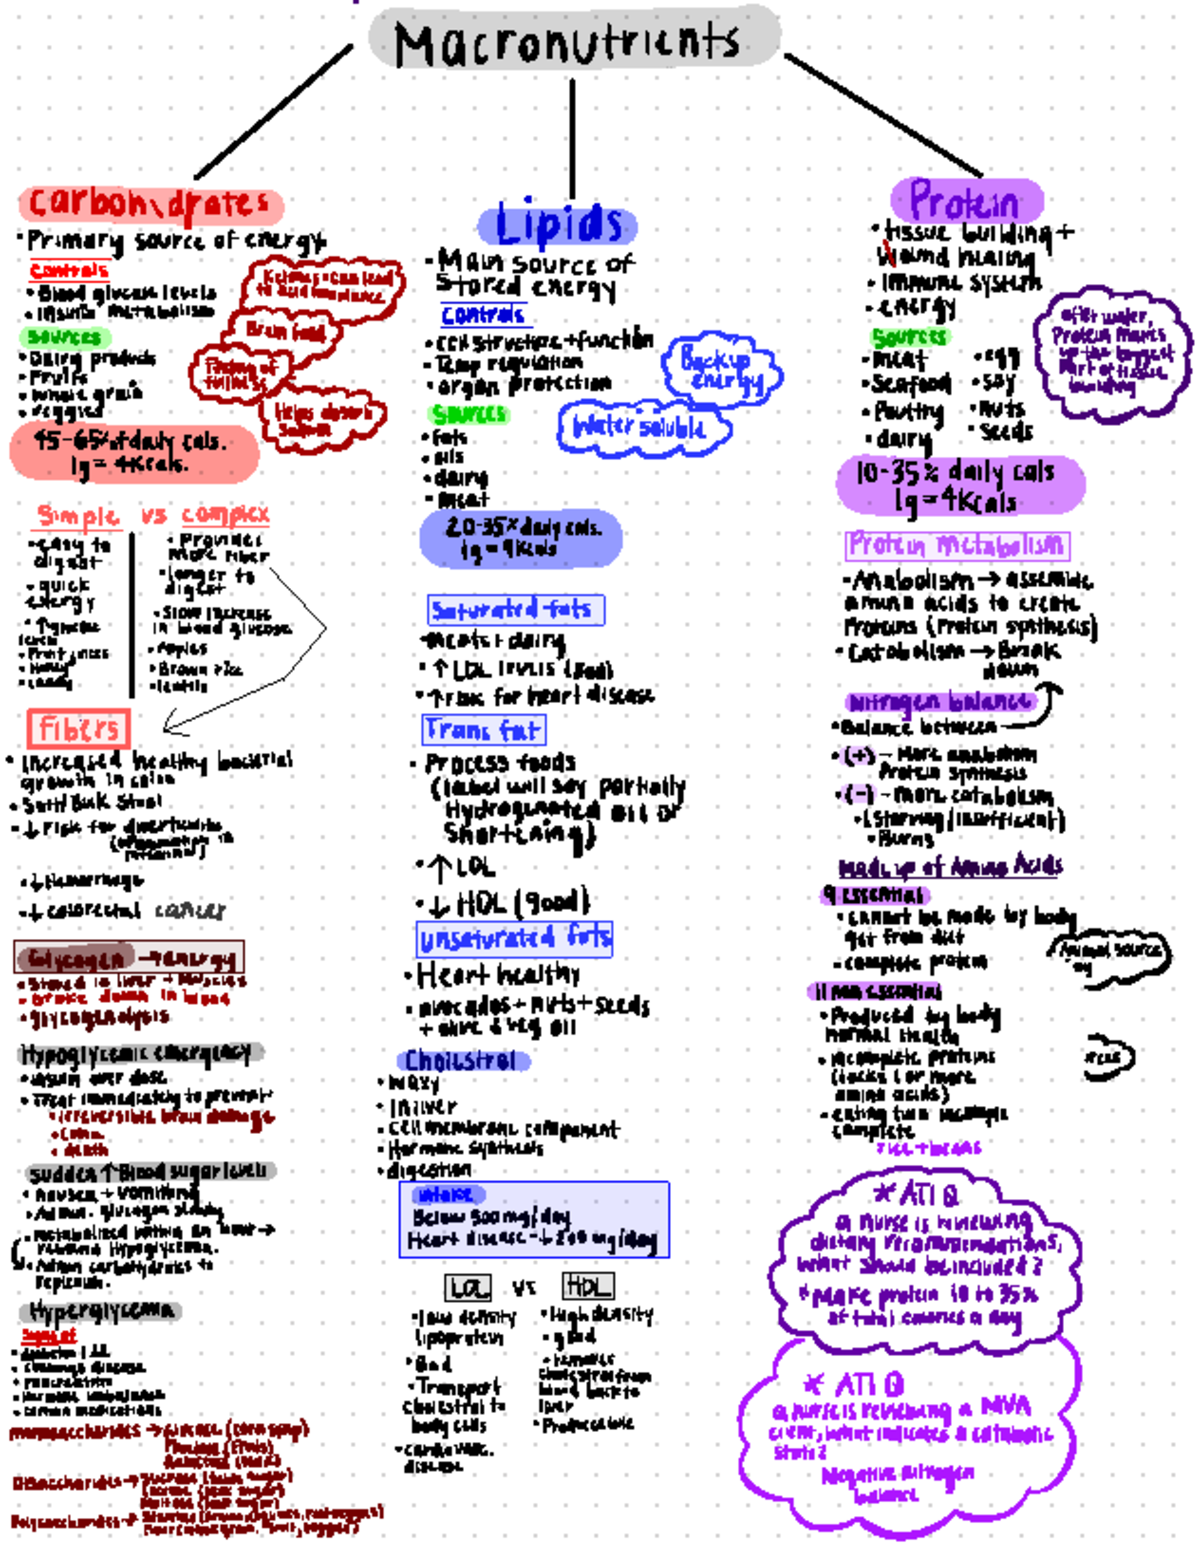 Macronutrients
Carbohydrates
• Primary source of energy
Controls
• Blood glucose levels
• insulin metabolism
Sources
• Dairy products
• Fruits
• whole grain
• veggies
Ketones = can lead
to acid imbalance
Brain food
Feeling of
fullness
Helps absorb
sodium
45-65% of daily cals.
1g = 4Kcals.
Simple vs complex
• easy to
digest
• quick
energy
levels
• Fruit juices
• Honey
• candy
• Provides
more fiber
• longer to
digest
• Slow increase
in blood glucose
• Apples
• Brown rice
• lentils
Fibers
• Increased healthy bacterial
growth in colon
• Soft/Bulk Stool
• ↓ risk for diverticulitis
• ↓ Hemorrhage
• ↓ colorectal cancer
Glycogen → energy
• Stored in liver + Muscles
• Broke down in blood
• glycogenolysis
Hypoglycemic emergency
• insulin over dose
• Treat immediately to prevent
• irreversible brain damage
• Coma
• death
Sudden ↑ Blood sugar levels
• nausea + vomiting
• Admin. glucagon slowly
• metabolized within an hour →
rebound hypoglycemia.
• Admin carbohydrates to
replenish.
Hyperglycemia
Signs of
• pancreatitis
• Hormone imbalances
• certain medications
monosaccharides → Glucose (corn syrup)
Disaccharides → Sucrose
Polysaccharides →
Lipids
• Main source of
Stored energy
Controls
• cell structure + function
• Temp regulation
• organ protection
Sources
• fats
• oils
• dairy
• meat
Backup
energy
Water soluble
20-35% daily cals.
1g = 9Kcals
Saturated fats
• meats + dairy
• ↑ LDL levels (Bad)
• ↑ risk for heart disease
Trans fat
• Process foods
(label will say partially
Hydrogenated oil or
Shortening)
• ↑ LDL
• ↓ HDL (good)
unsaturated fats
• Heart healthy
• avocados + nuts + seeds
+ olive & veg oil
Cholestrol
• waxy
• in liver
• cell membrane component
• Hormone synthesis
• digestion
intake
Below 300 mg/day
Heart disease - ↓ 200 mg/day
LDL vs HDL
• low density
lipoprotein
• Bad
• Transport
cholestrol to
body cells
• cardiovasc.
disease
• High density
• good
• removes
cholestrol from
blood back to
liver
Protein
• tissue building +
Wound healing
• Immune system
• energy
Sources
• meat
• Seafood
• Poultry
• dairy
• egg
• soy
• Nuts
• Seeds
after water,
Protein makes
up the biggest
Part of tissue
building
10-35% daily cals
1g = 4Kcals
Protein metabolism
• Anabolism → assemble
amino acids to create
Proteins (Protein synthesis)
• Catabolism → Break
down
Nitrogen balance
• Balance between
• (+) - More anabolism
Protein synthesis
• (-) - more catabolism
• (Starving/insufficient)
• Burns
Made up of Amino Acids
9 essential
• cannot be made by body
get from diet
• complete protein
Animal source
soy
11 non essential
• Produced by body
normal health
• incomplete proteins
(lacks 1 or more
amino acids)
• eating two incomple
complete
rice + beans
* ATI Q
a nurse is reviewing
dietary recommendations,
what should be included?
* Make protein 10 to 35%
of total calories a day
* ATI Q
a nurse is reviewing a MVA
client, what indicates a catabolic
state?
Negative nitrogen
balance